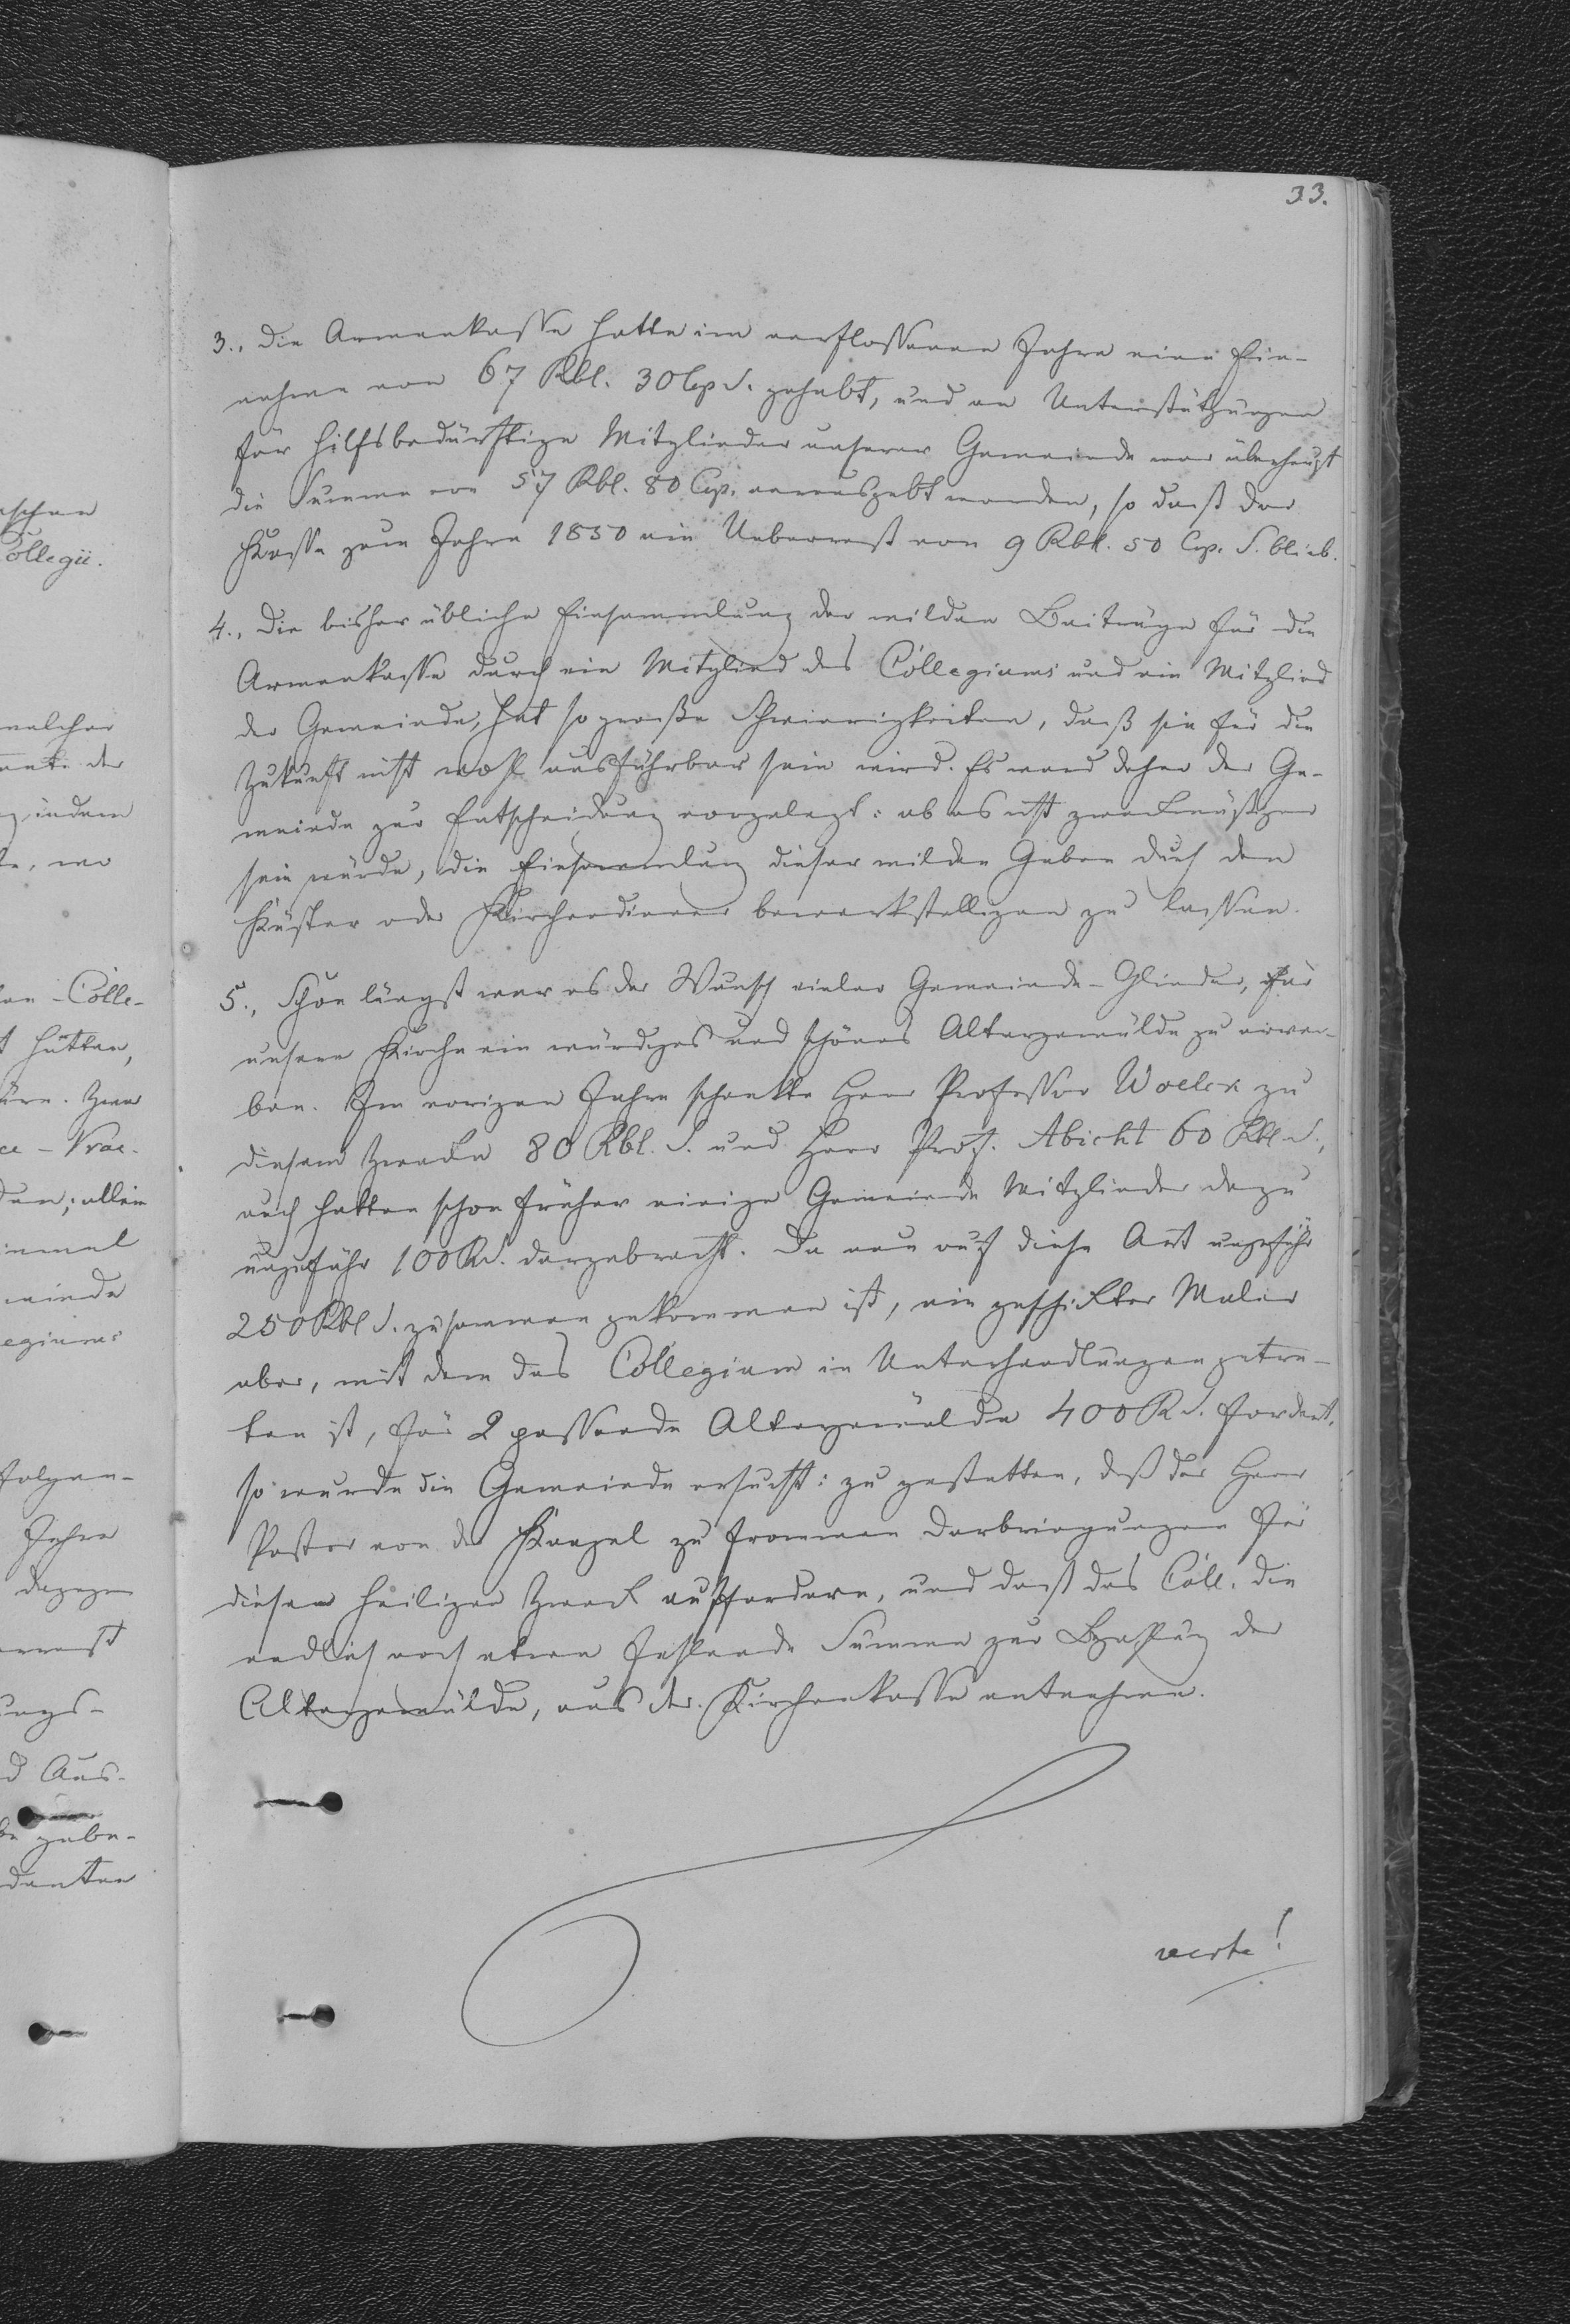 33.
3., Die Armenkasse hatte im verflossenen Jahre eine Ein-
nahme von 67 Rbl. 30 Cp S. gehabt, und an Unterstützungen
für hilfsbedürftige Mitglieder unserer Gemeinde war überhaupt
die Summe von 57 Rbl. 80 Cop. verausgabt worden, so daß der
Kasse zum Jahre 1850 ein Ueberrest von 9 Rbl. 50 Cop. S. blieb.
4., Die bisher übliche Einsammlung der milden Beiträge für die
Armenkasse durch ein Mitglied des Collegiums und ein Mitglied
der Gemeinde, hat so große Schwierigkeiten, daß sie für die
Zukunft nicht wohl ausführbar sein wird. Es ward daher der Ge-
meinde zur Entscheidung vorgelegt: ob es nicht zweckmäßiger
sein würde, die Einsammlung dieser milden Gaben durch den
Küster oder Kirchendiener bewerkstelligen zu lassen.
5., Schon längst war es der Wunsch vieler Gemeinde-Glieder, für
unsere Kirche ein würdiges und schönes Altargemälde zu erwer-
ben. Im vorigen Jahre schenkte Herr Professor Woelck zu
diesem Zwecke 80 Rbl. S. und Herr Prof. Abicht 60 Rbl S.,
auch hatten schon früher einige Gemeinde Mitglieder dazu
ungefähr 100 R S. dargebracht. Da nun auf diese Art ungefähr
250 Rbl S. zusammen gekommen ist, ein geschickter Maler
aber, mit dem das Collegium in Unterhandlungen getre-
ten ist, für 2 passende Altargemälde 400 R S. fordert,
so wurde die Gemeinde ersucht: zu gestatten, daß der Herr
Pastor von der Kanzel zu frommen Darbringungen für
diesen heiligen Zweck auffordere, und daß das Coll. die
endlich noch etwa fehlende Summe zur Bezahlung der
Altargemälde, aus der Kirchenkasse entnehme.
verte!
Collegii.
welcher
indem
Colle-
hätten,
allein
einmal
meinde
legiums
folgen-
Jahre
dagegen
Aus-